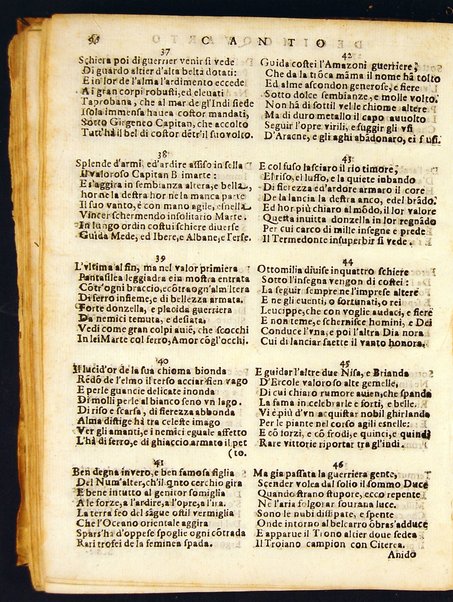 CANTO
37
Schiera poi di guerrier venir si vede
Di guardo altier d'alta beltà dotati:
E in lor de l'alma l'ardimento eccede
A i gran corpi robusti, ed eleuati
Taprobana, che al mar de gl'Indi siede
Isola immensa hauea costor mandati,
Sotto Girgenteo Capitan, che accolto
Tutt'hà il bel di costor dētr'il suo volto.
38
Splende d'armi, ed'ardire assiso in sella
il valoroso Capitan imarte:
E s'aggira in sembianza altera, e bella,
hor ne la destra hor ne la manca parte
Il suo vanto, è con mano agile, e snella
Vincer schermendo insolitario Marte.
In lungo ordin costui schiere diuerse
Guida Mede, ed Ibere, e Albane, e Perse.
39
L'vltima al fin, ma nel valor primiera
Pantasilea leggiadra eia mostra entrata
Cōtr'ogni braccio, ecōtra ogn'alm'altera
Di ferro insieme, e di bellezza armata.
Forte donzella, e placida guerriera
Da nemici temuta, e desiata,
Vedi come gran colpi auiē, che scocchi
In lei Marte col ferro, Amor cōgl'occhi.
40
Il lucid'or de la sua chioma bionda
Rēdō de l'elmo il terso acciar fien vago
E perle guancie delicate inonda
Di molli perle al bianco seno vn lago.
Di riso e scarsa, di fierezza abbonda
Alma distige hà tra celeste imago
Ver gli amanti, e i nemici eguale affetto
L'hà di ferro, e di ghiaccio armato il pet
(to.
41
Ben degna invero, e ben famosa figlia
Del Num'alter, ch'il qnto cerchio gira
E bene intutto al genitor somiglia
A le forze, a l'ardire, a l'opre, a l'ira.
La terra feo del sāgue ostil vermiglia
Che l'Oceano orientale aggira
Spars'ha d'oppese spoglie ogni cōtrada
Rari trofei de la feminea spada.
42
Guida costei l'Amazoni guerriere,
Che da la trōca māma il nome hā tolto
Ed alme ascondon generose, e fiere
Sotto dolce sembianze, e molle volto.
Non hà di sottil vel le chiome altere
Ma di duro metallo il capo auuolto
Seguir l'opre virili, e fuggir gli vsi
D'Aracne, e gli aghi abādonaro, ei fusi.
43
E col fuso lasciaro il rio timore,
El riso, el lusso, e la quiete inbando
Di fierezza ed'ardore armaro il core
De la lancia la destra anco, edel brādo.
Ed hor più chiaro al mōdo, il lor valore
Questa inuitta donzella in lor regnādo
Per cui carco di mille insegne e prede
Il Termedonte insuperbir si vede.
44
Ottomilia diuise inquattro schiere
Sotto l'insegna vengon di costei:
La seguir sempre ne l'imprese altere
E ne gli euenti, o fortunati, o rei
Leucippe, che con voglie audaci, e fiere
E non teme, e schernisce homini, e Dei
Conduce l'vna, e poi l'altra Dia nora
Cui di lanciar saette il vanto honora.
45
E guidar l'altre due Nisa, e Brianda
D'Ercole valoroso alte gemelle,
Di cui chiaro rumore auien, che spanda
La fama in celebrarle e forti, e belle.
Vi è più d'vn acquistar nobil ghirlanda
Per le piante nel corso agili esnelle:
E cō forzi, e cō frodi, e quinci, e quindi
Rare vittorie riportar tra gl'indi.
46
Ma gia passata la guerriera gente,
Scender volea dal folio il sommo Duce
Quando strano stupore, ecco repente
Ne l'aria folgorar sourana luce.
Sono le nubi dissipate, e spente
Onde intorno al bel carro obras'adduce
E apparue il Trono altier doue sedea
Il Troiano campion con Citerea.
Anido